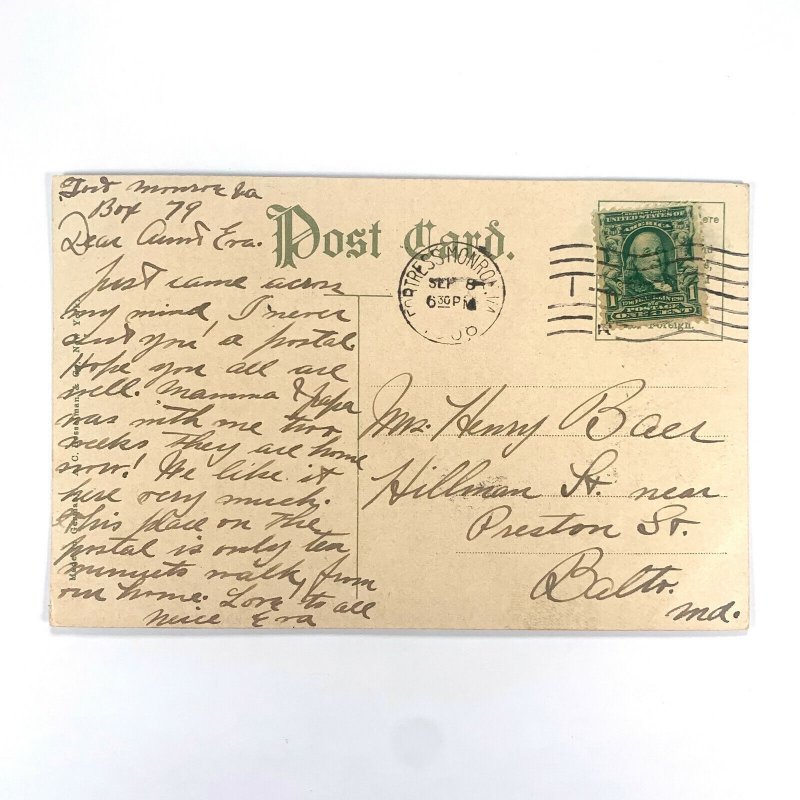 Fort Monroe Va
Box 79
Dear Aunt Eva.
Just came across
my mind I never
sent you a postal
Hope you all are
well. Mamma & Papa
was with me two
weeks they are home
now! We like it
here very much.
This place on the
postal is only ten
minuets walk, from
our home. Love to all
neice Eva
Post Card.
FORTRESS MONROE, VA.
SEP 8
6 30 PM
UNITED STATES OF
AMERICA
POSTAGE
ONE CENT
1
1
Here
Foreign.
Mrs. Henry Baer
Hillman St. near
Preston St.
Balto.
Md.